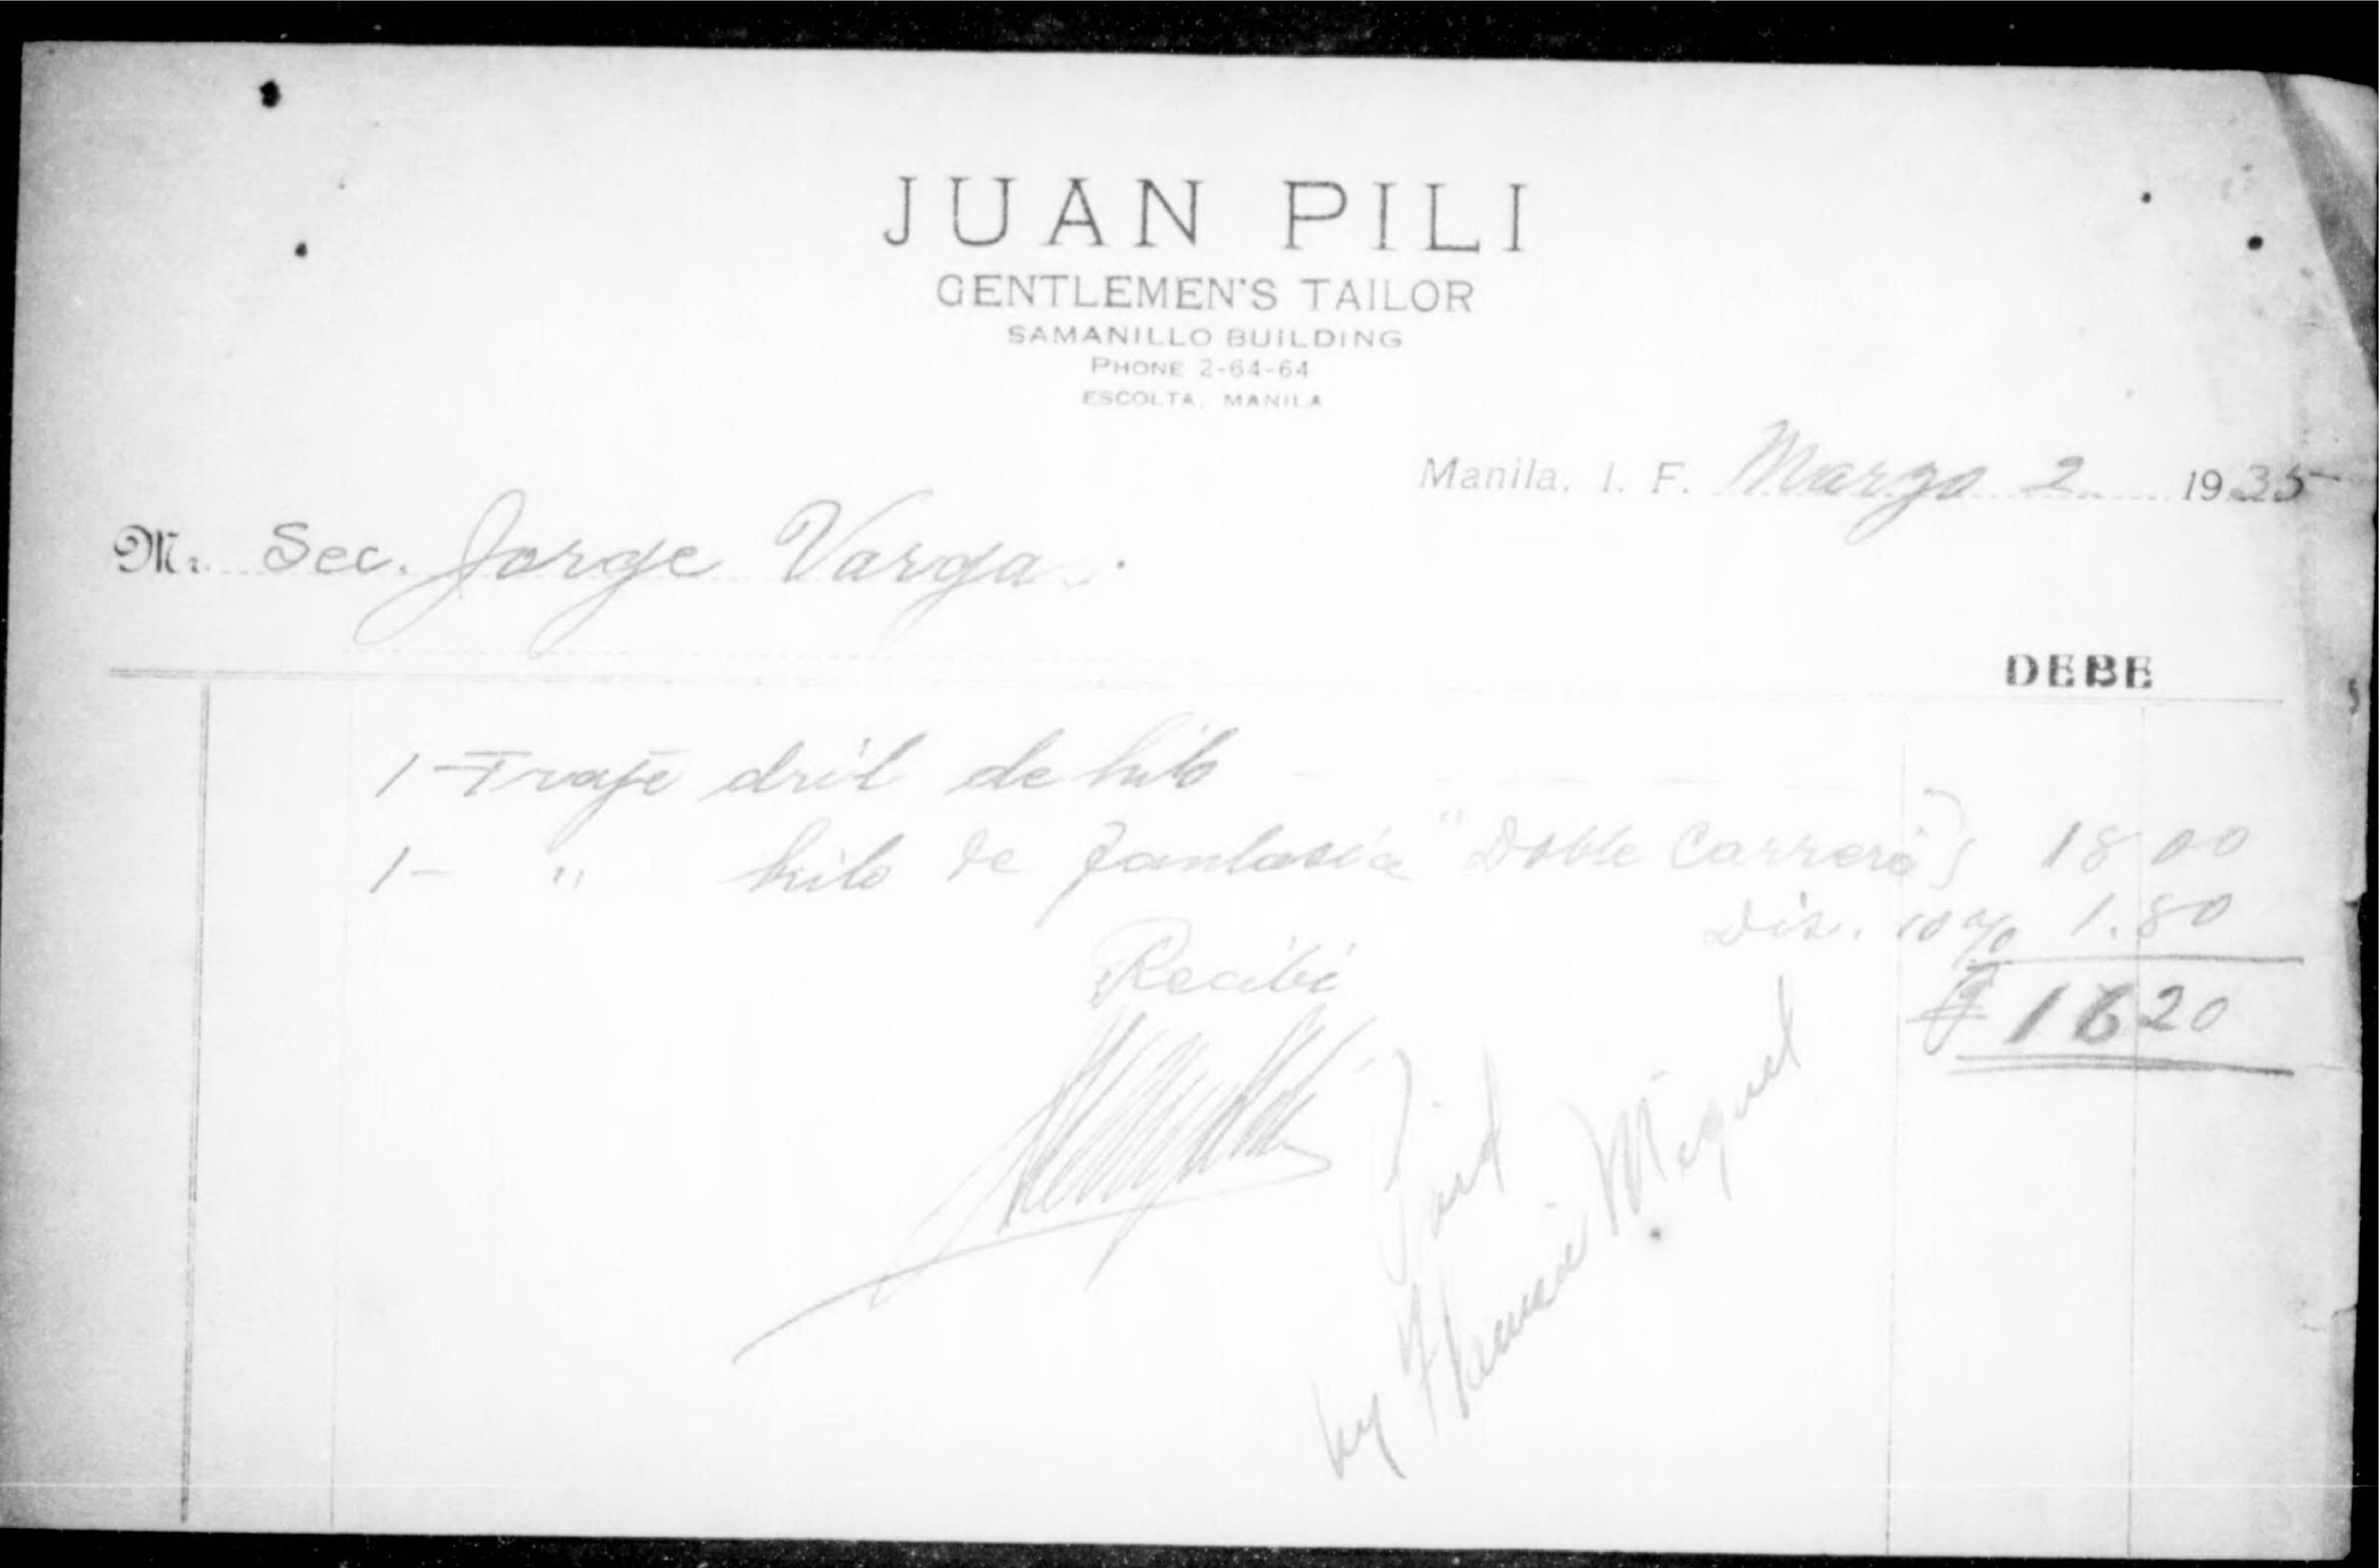 JUAN PILI
GENTLEMEN'S TAILOR
SAMANILLO BUILDING
PHONE 2-64-64
ESCOLTA, MANILA
Manila, I. F. Marzo 2 1935
M. Sec. Jorge Vargas.
DEBE
1 - Traje dril de hilo
1 - " hilo de fantasia "Doble Carrera" } 18 00
Dis. 10% 1.80
₱ 16 20
Recibi
Paid
by Miguel